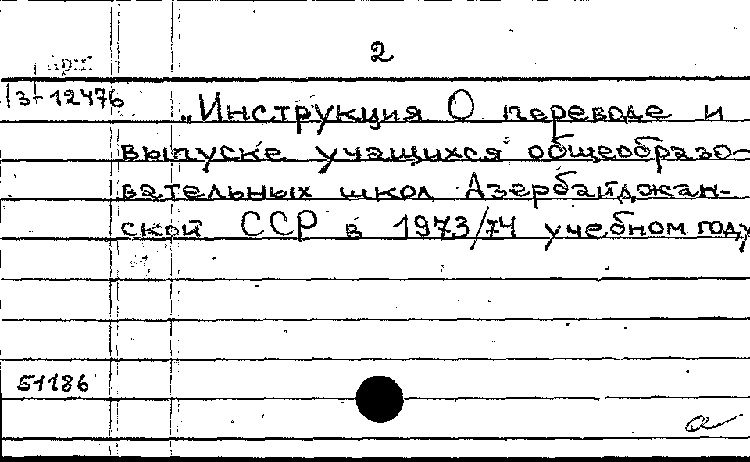 2
Арх
/3-12476
„Инструкция О переводе и
выпуске учащихся общеобразо-
вательных школ Азербайджан-
ской ССР в 1973/74 учебном году
51186
а